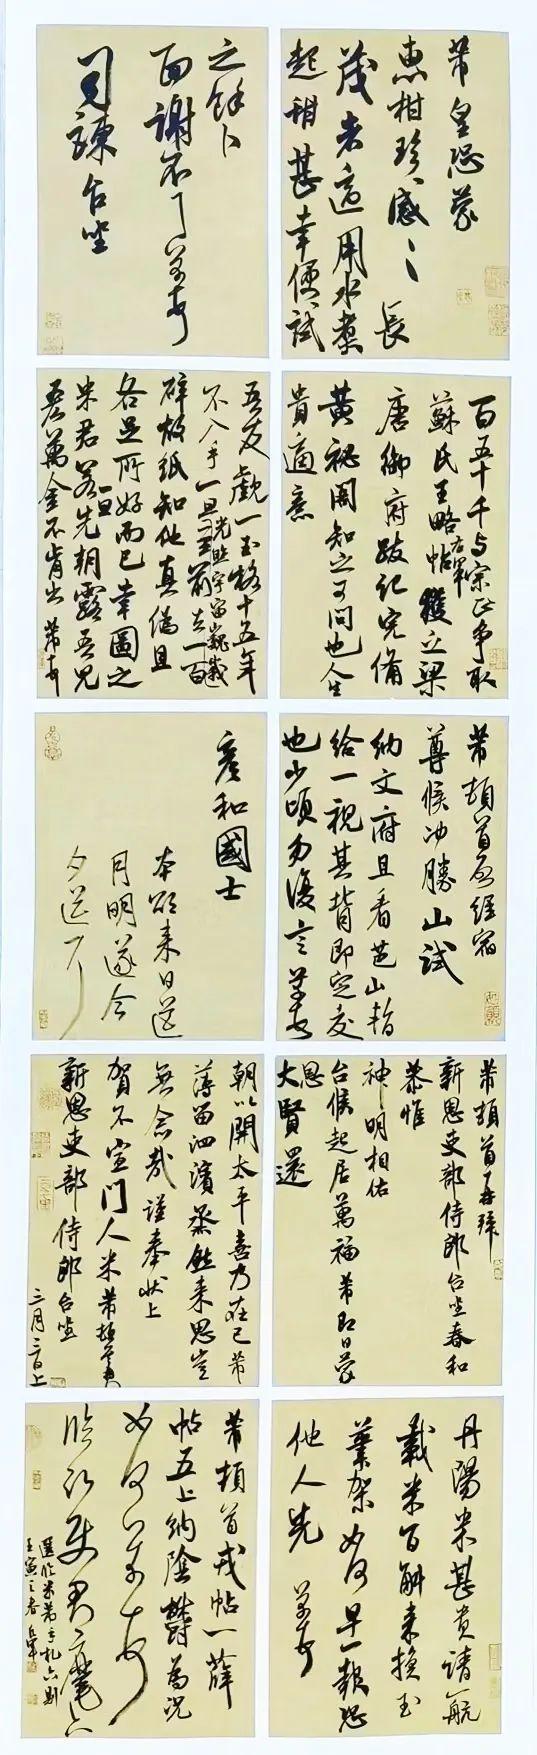 芾皇恐蒙
惠柑珍感〻長
茂者適用水煮
起甜甚幸便試
之餘卜
面謝不一一芾頓
司諫台坐
百五十千与宗正争取
蘇氏王略帖右軍獲之梁
唐御府跋記完備
黃秘閣知之可問也人生
貴適意
吾友覷一玉格十五年
不入手一旦光照宇宙巍峨
至前去一百
碎故紙知他真偽且
各足所好而已幸圖之
米君若一旦先朝露吾兒
吝萬金不肯出芾頓
芾頓首啓經宿
尊候冲勝山試
納文府且看芭山暫
給一視其背即定交
也少頃勿復言芾頓
彥和國士
本欲來日送
月明遂今
夕送耳
芾頓首再拜
新恩吏部侍郎台坐春和
恭惟
神明相佑
台候起居萬福芾即日蒙
恩
大賢還
朝以開太平喜乃在己芾
薄留泗濱烝然來思豈
無念哉謹奉狀上
賀不宣門人米芾頓首再拜
新恩吏部侍郎台坐
三月三日上
丹陽米甚貴請一航
載米百斛來換玉
筆架如何早一報恐
他人先芾頓
芾頓首戎帖一薛
帖五上納陰鬱為況
如何芾頓首
臨沂使君麾下
選臨米芾手札六則
壬寅之春